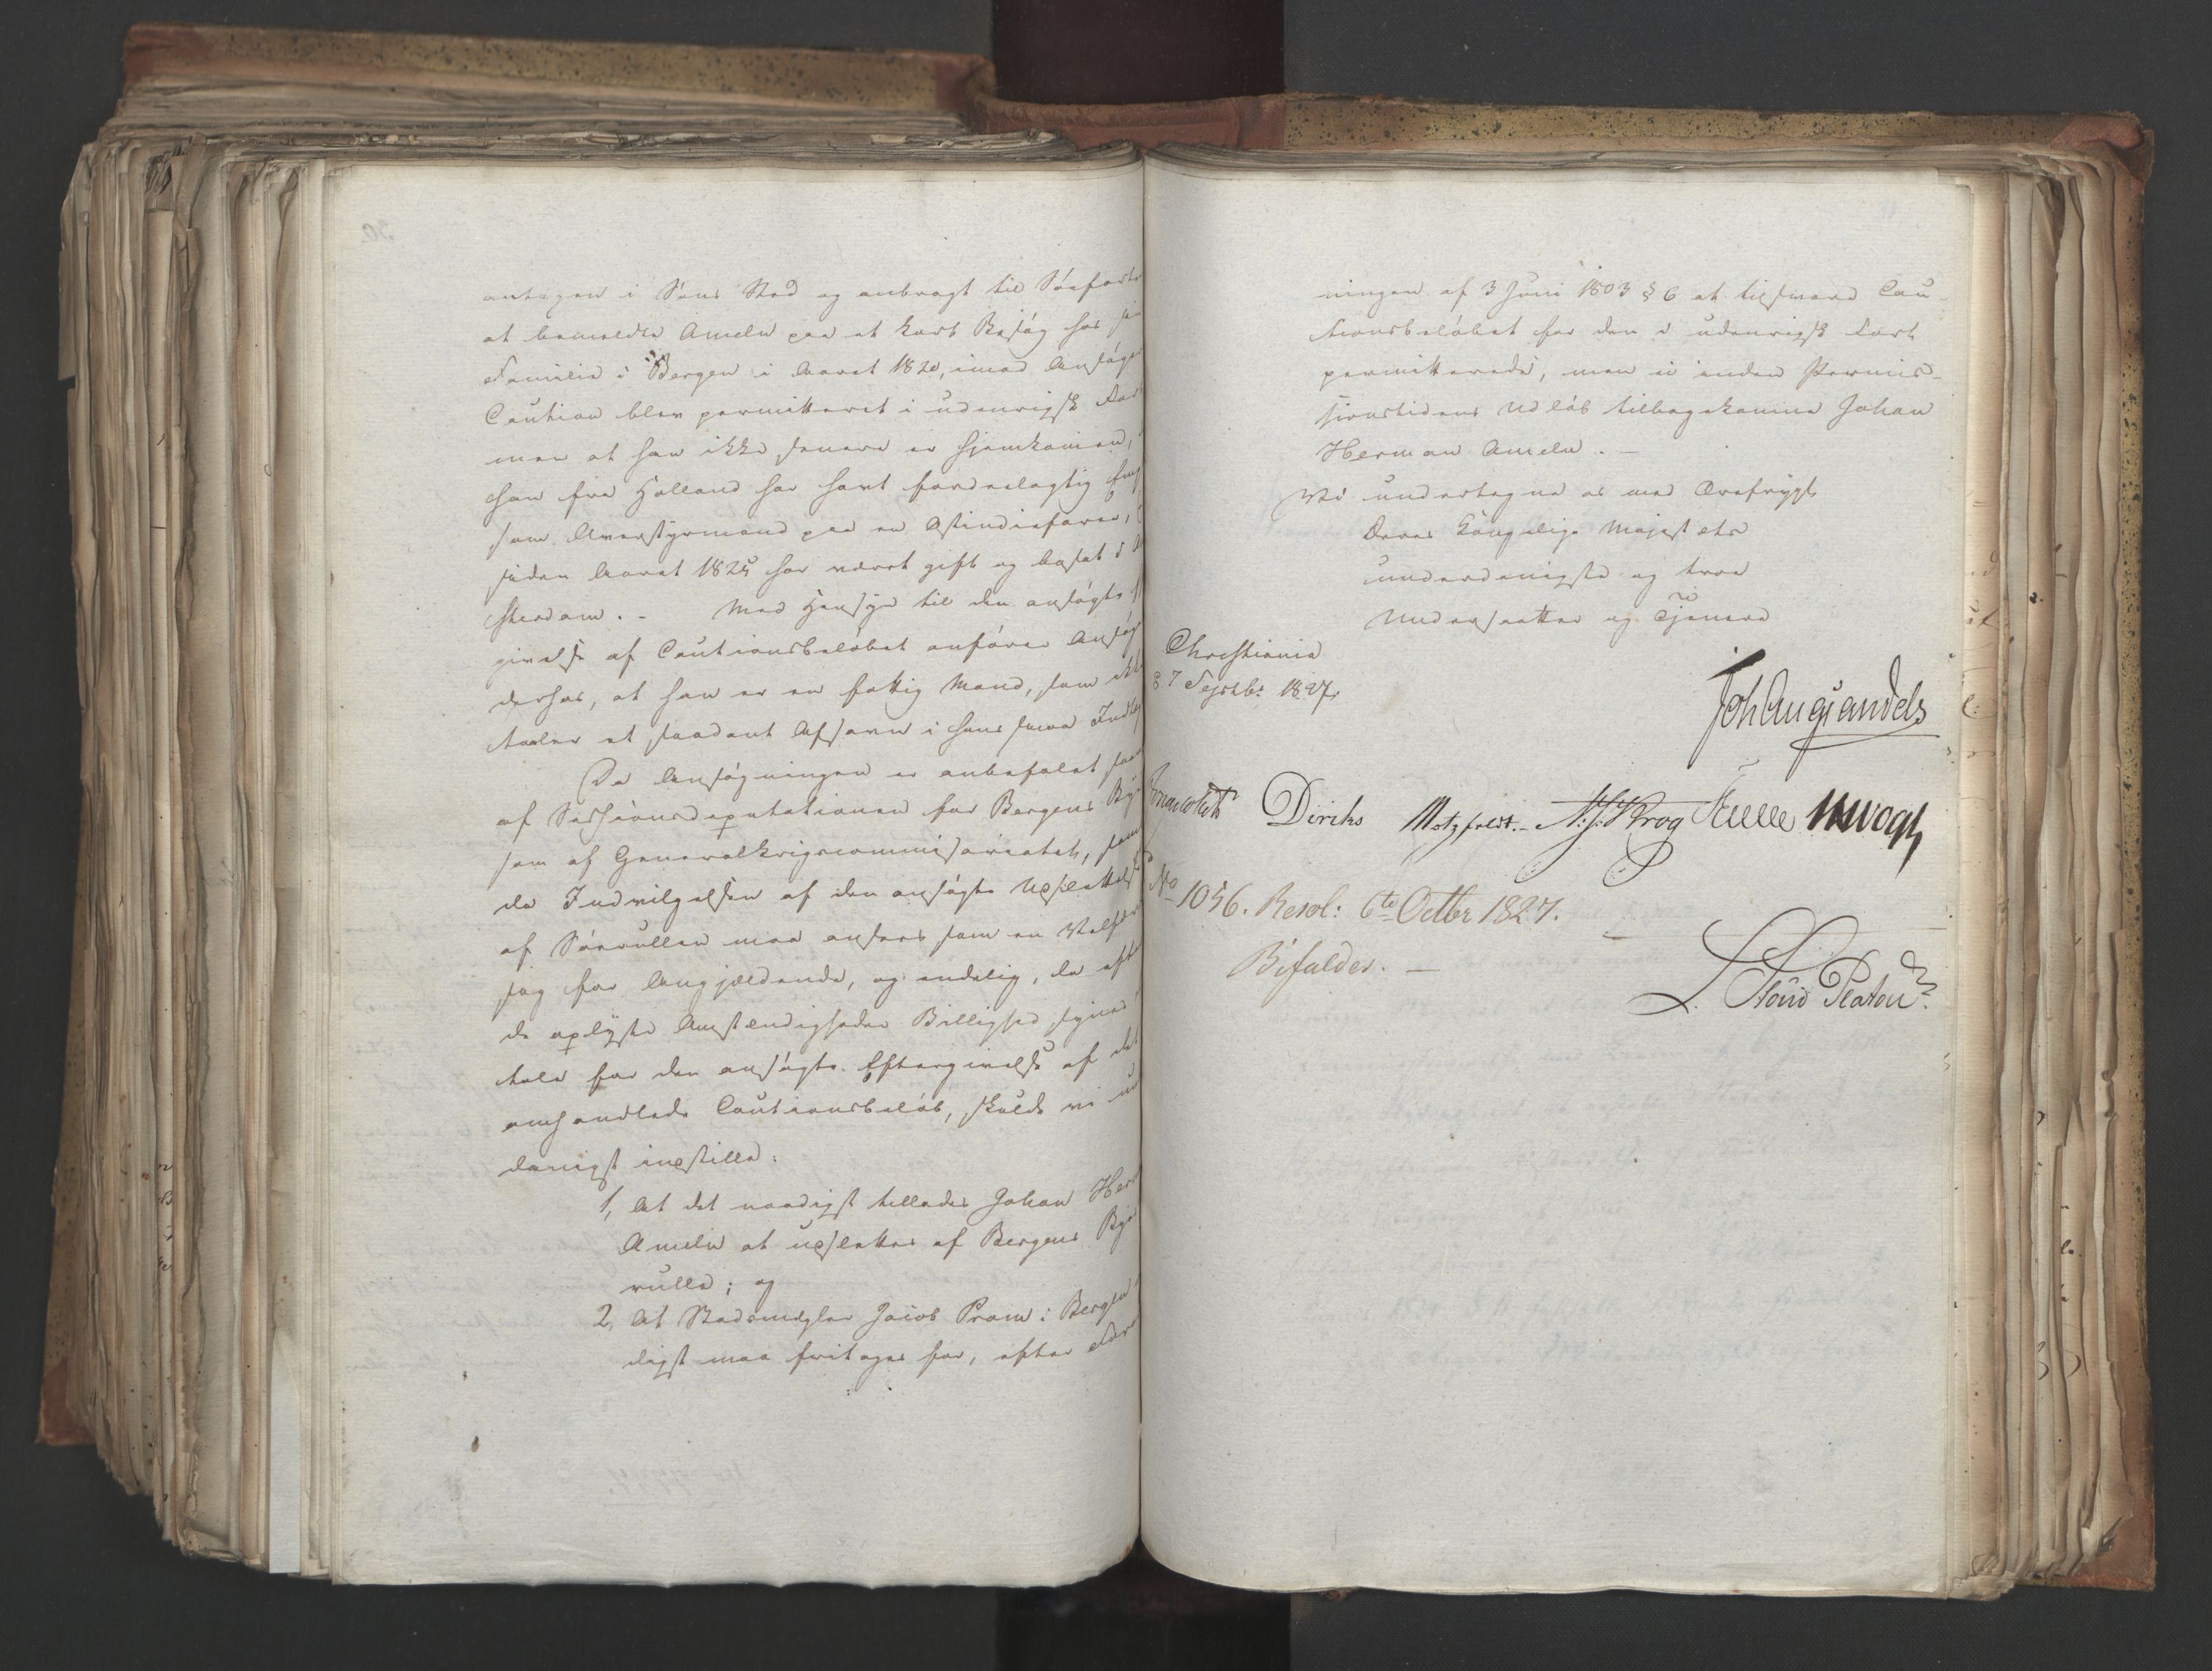 antagen i Søns Sted og anbragt til Søefarts
at bemeldte Ameln paa et kort Besøg hos
Familie i Bergen i Aaret 1820, imod Ansøger
Caution blev permitteret i udenrigsk Far
men at han ikke senere er hjemkommen,
han fra Holland har havt fordeelagtig
som Overstyrmand paa en Ostindiefarer,
siden Aaret 1825 har været gift og bosat i
sterdam. - Med Hensyn til den ansøgte
givelse af Cautionsbeløbet anfører Ansøg
derhos, at han er en fattig Mand, som
taaler et saadant Afsavn i hans smaa
Da Ansøgningen er anbefalet saa
af Sessionsdeputationen for Bergens
som af Generalkrigscommissariatet,
da Indvilgelsen af den ansøgte Udslettelse
af Søerullen maa ansees som en Velf
sag for Angjældende, og endelig, da efter
de oplyste Omstændigheder Billighed synes
tale for den ansøgte Eftergivelse af det
omhandlede Cautionsbeløb, skulde vi un
danigst indstille:
1, At det naadigst tillades Johan Her
Ameln at udslettes af Bergens
rulle; og
2, At Stadsmægler Jacob Pram i Bergen
digst maa fritages for, efter
ningen af 3 Juni 1803 § 6 at tilsvare Cau-
tionsbeløbet for den i udenrigsk Fart
permitterede, men ei inden Permis-
sionstidens Udløb tilbagekomne Johan
Herman Ameln. -
Vi undertegne os med Ærefrygt
Deres Kongelige Majestæts
underdanigste og troe
Undersaatter og Tjenere
Christiania
7 Septbr 1827.
Joh Aug Sandels
Diriks Motzfeldt. - Krog Vogt
No 1056. Resol: 6te Octbr 1827.
Bifaldes. -
L. Stoud Platou